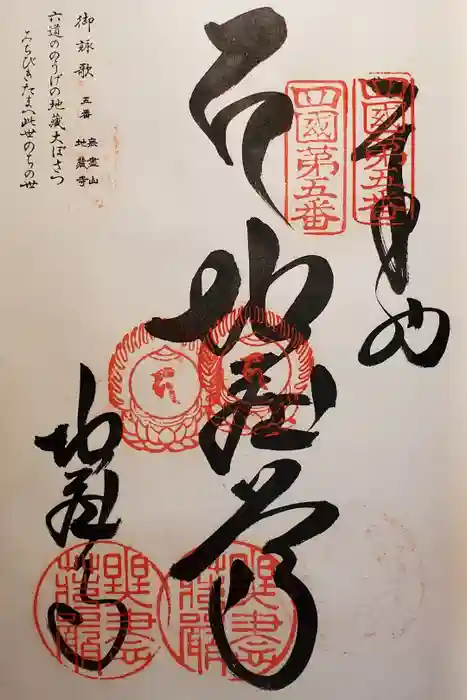 四國第五番
奉納
四國第五番
地蔵尊
御詠歌 五番
無盡山
地蔵寺
六道ののうげの地蔵大ぼさつ
みちびきたまへ此世のちの世
地蔵寺